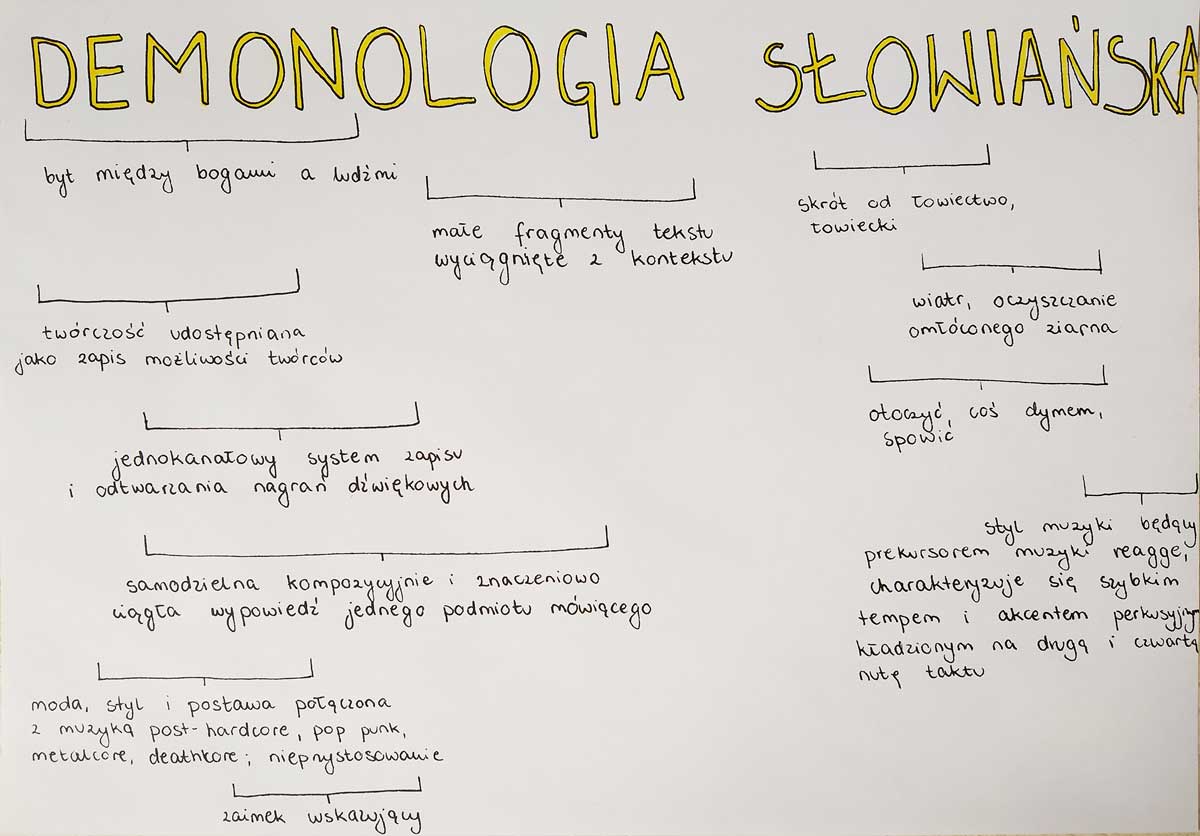 DEMONOLOGIA SŁOWIAŃSKA
byt między bogami a ludźmi
małe fragmenty tekstu
wyciągnięte z kontekstu
skrót od łowiectwo,
łowiecki
twórczość udostępniana
jako zapis możliwości twórców
wiatr, oczyszczanie
omłóconego ziarna
jednokanałowy system zapisu
i odtwarzania nagrań dźwiękowych
otoczyć coś dymem,
spowić
samodzielna kompozycyjnie i znaczeniowo
ciągła wypowiedź jednego podmiotu mówiącego
styl muzyki będący
prekursorem muzyki reagge,
charakteryzuje się szybkim
tempem i akcentem perkusyjnym
kładzionym na drugą i czwartą
nutę taktu
moda, styl i postawa połączona
z muzyką post-hardcore, pop punk,
metalcore, deathcore; nieprzystosowanie
zaimek wskazujący